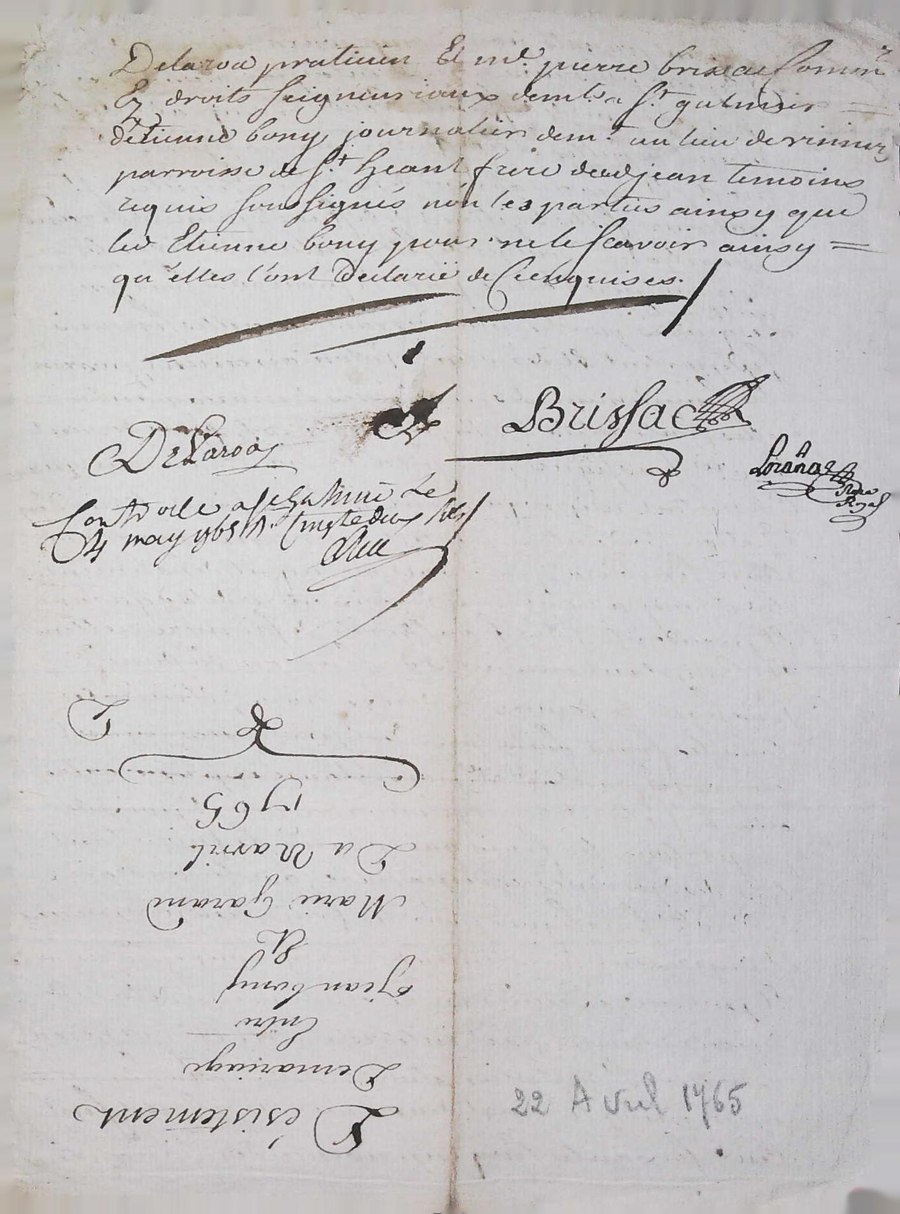 Delaroa praticien Et me. pierre brissac Commre
Ez droits seigneuriaux demt. a St. galmier =
d'etienne bony journalier demt. au lieu de
parroisse de St. heant frere dud jean temoins
requis soussignés non les parties ainsy que
led Etienne bony pour ne le scavoir ainsy =
qu'elles l'ont declaré de Ce enquises.
Brissac
DeLaroa
notre
Royal
Controlé a le
4 may 1765
Désistement
De mariage
Entre
Jean bony
Et
Marie Garand
Du avril
1765
22 Avril 1765